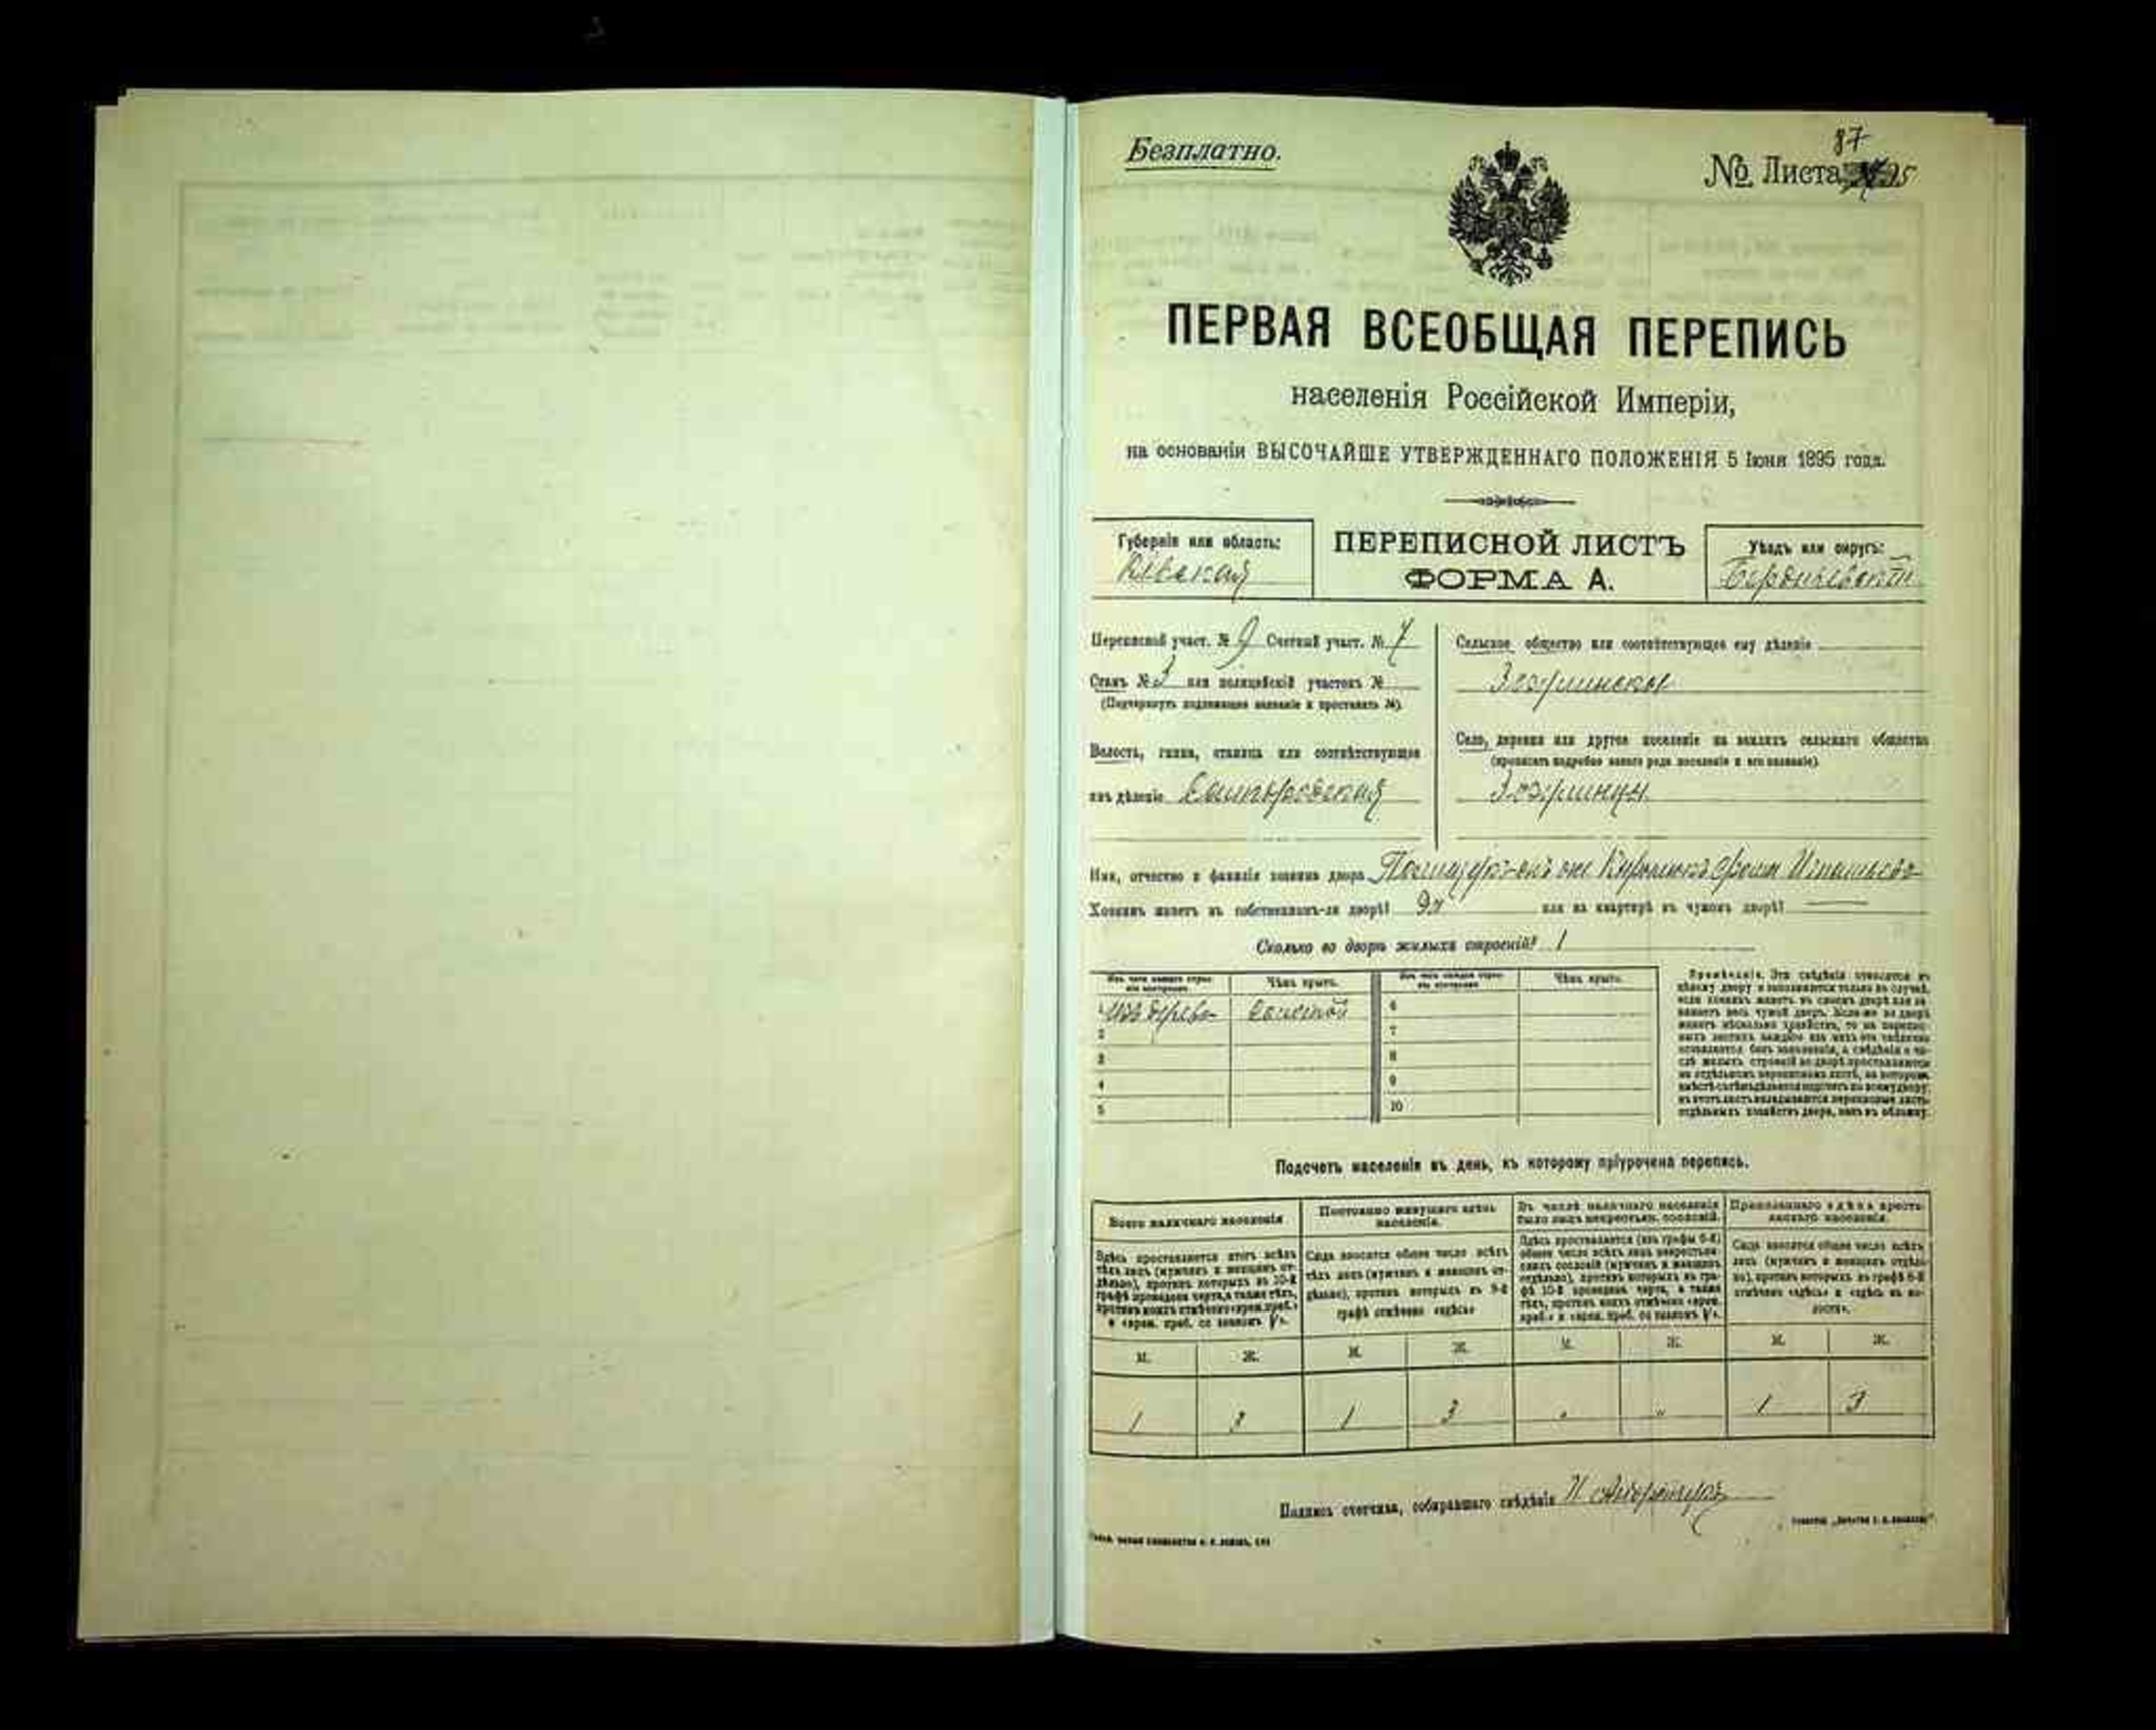 Безплатно.
87
№ Листа 95
ПЕРВАЯ ВСЕОБЩАЯ ПЕРЕПИСЬ
населенія Россійской Имперіи,
на основаніи ВЫСОЧАЙШЕ УТВЕРЖДЕННАГО ПОЛОЖЕНІЯ 5 Іюня 1895 года.
Губернія или область:
Кіевская
ПЕРЕПИСНОЙ ЛИСТЪ
ФОРМА А.
Уѣздъ или округъ:
Бердичевскій
Переписной участ. № 9 Счетный участ. № 7
Станъ № 3 или полицейскій участокъ №
(Подчеркнуть надлежащее названіе и проставить №).
Волость, гмина, станица или соотвѣтствующее
имъ дѣленіе
Сельское общество или соотвѣтствующее ему дѣленіе
Село, деревня или другое поселеніе на земляхъ сельскаго общества
(прописать подробно какого рода поселеніе и его названіе).
Имя, отчество и фамилія хозяина двора
Хозяинъ живетъ въ собственномъ-ли дворѣ? или на квартирѣ въ чужомъ дворѣ?
Сколько во дворѣ жилыхъ строеній? 1
Изъ чего каждое строеніе построено. Чѣмъ крыто. Изъ чего каждое строеніе построено. Чѣмъ крыто.
1 Изъ дерева Соломой 6
2 7
3 8
4 9
5 10
Примѣчаніе. Эти свѣдѣнія относятся къ
цѣлому двору и заполняются только въ случаѣ,
если хозяинъ живетъ въ своемъ дворѣ или за-
нимаетъ весь чужой дворъ. Если-же во дворѣ
живетъ нѣсколько хозяйствъ, то на перепис-
ныхъ листахъ каждаго изъ нихъ эти свѣдѣнія
оставляются безъ заполненія, а свѣдѣнія о чи-
слѣ жилыхъ строеній во дворѣ проставляются
на отдѣльномъ переписномъ листѣ, на которомъ
вмѣстѣ съ тѣмъ дѣлается подсчетъ по всему двору;
въ этотъ листъ вкладываются переписные листы
отдѣльныхъ хозяйствъ двора, какъ въ обложку.
Подсчетъ населенія въ день, къ которому пріурочена перепись.
Всего наличнаго населенія
Здѣсь проставляется итогъ всѣхъ
тѣхъ лицъ (мужчинъ и женщинъ от-
дѣльно), противъ которыхъ въ 10-й
графѣ проведена черта, а также тѣхъ,
противъ коихъ отмѣчено «врем. преб.»
и «врем. преб. со знакомъ V».
Постоянно живущаго здѣсь
населенія.
Сюда вносится общее число всѣхъ
тѣхъ лицъ (мужчинъ и женщинъ от-
дѣльно), противъ которыхъ въ 9-й
графѣ отмѣчено «здѣсь»
Въ числѣ наличнаго населенія
было лицъ некрестьян. сословій.
Здѣсь проставляется (изъ графы 6-й)
общее число всѣхъ лицъ некрестьян-
скихъ сословій (мужчинъ и женщинъ
отдѣльно), противъ которыхъ въ гра-
фѣ 10-й проведена черта, а также
тѣхъ, противъ коихъ отмѣчено «врем.
преб.» и «врем. преб. со знакомъ V».
Приписаннаго здѣсь кресть-
янскаго населенія.
Сюда вносится общее число всѣхъ
лицъ (мужчинъ и женщинъ отдѣль-
но), противъ которыхъ въ графѣ 8-й
отмѣчено «здѣсь» и «здѣсь въ во-
лости».
М. Ж. М. Ж. М. Ж. М. Ж.
1 3 1 3 " " 1 3
Подпись счетчика, собиравшаго свѣдѣнія